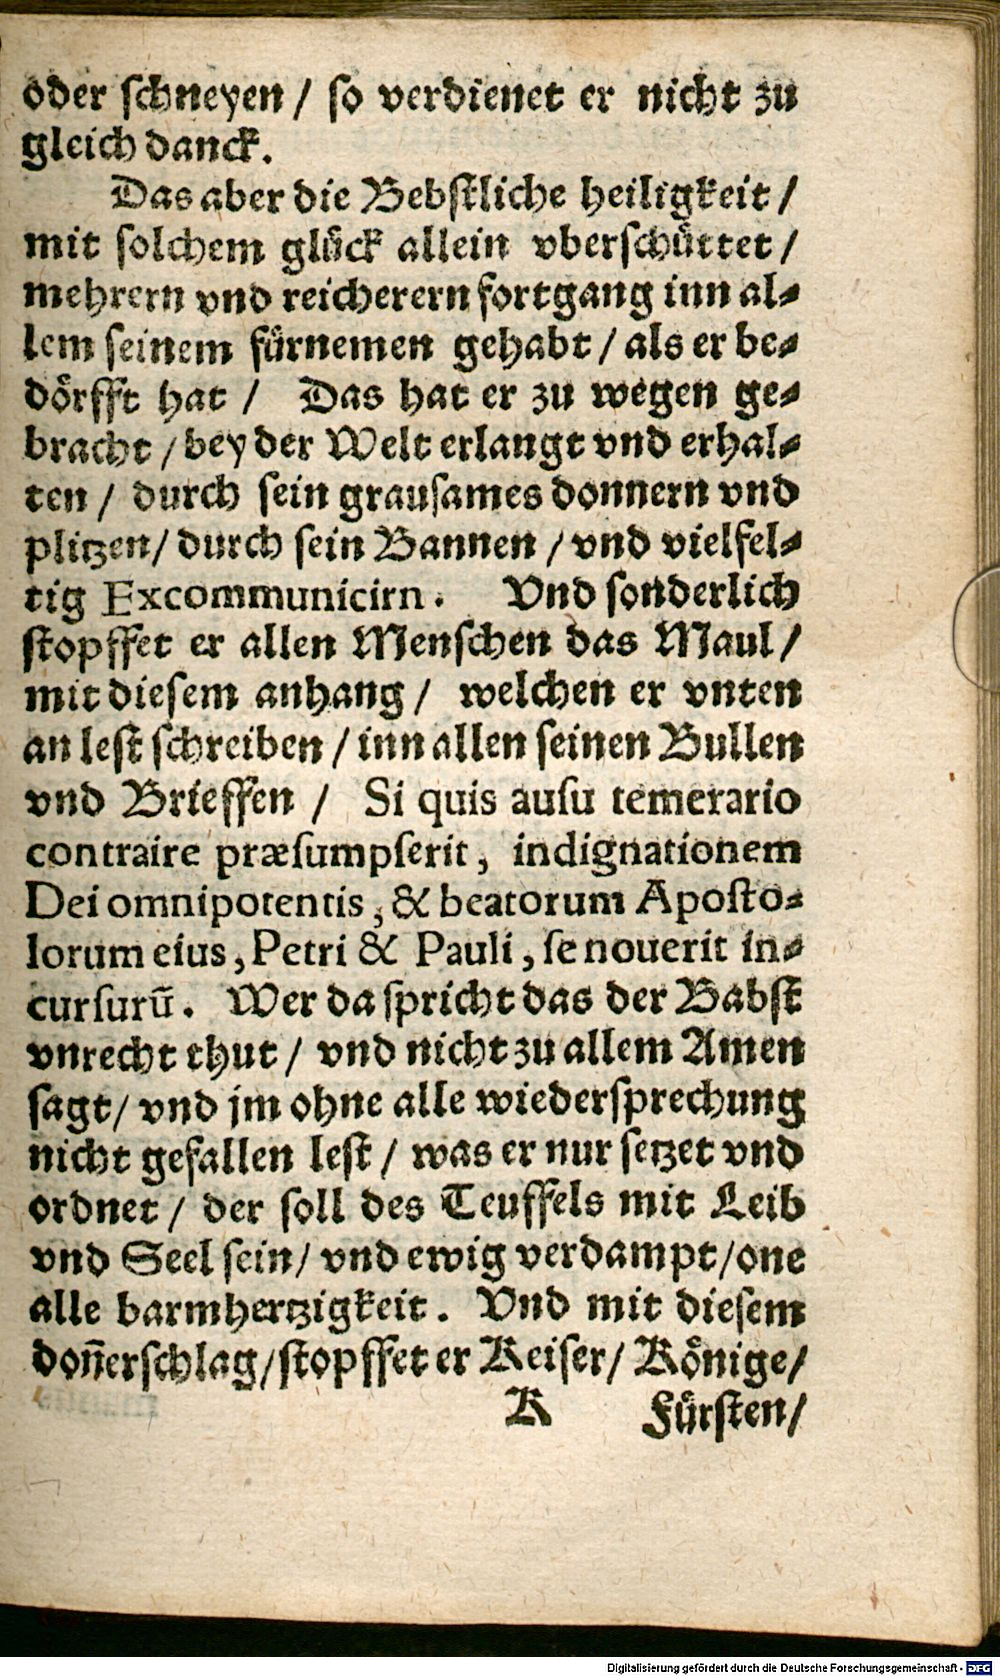 oder schneyen / so verdienet er nicht zu
gleich danck.
Das aber die Bebstliche heiligkeit /
mit solchem glück allein vberschüttet /
mehrern vnd reicherern fortgang inn al⸗
lem seinem fürnemen gehabt / als er be⸗
dörfft hat / Das hat er zu wegen ge⸗
bracht / bey der Welt erlangt vnd erhal⸗
ten / durch sein grausames donnern vnd
plitzen / durch sein Bannen / vnd vielfel⸗
tig Excommunicirn. Vnd sonderlich
stopffet er allen Menschen das Maul /
mit diesem anhang / welchen er vnten
an lest schreiben / inn allen seinen Bullen
vnd Brieffen / Si quis ausu temerario
contraire præsumpserit, indignationem
Dei omnipotentis, & beatorum Aposto⸗
lorum eius, Petri & Pauli, se nouerit in⸗
cursurū. Wer da spricht das der Babst
vnrecht thut / vnd nicht zu allem Amen
sagt / vnd jm ohne alle wiedersprechung
nicht gefallen lest / was er nur setzet vnd
ordnet / der soll des Teuffels mit Leib
vnd Seel sein / vnd ewig verdampt / one
alle barmhertzigkeit. Vnd mit diesem
don̄erschlag / stopffet er Keiser / Könige /
K Fürsten /
Digitalisierung gefördert durch die Deutsche Forschungsgemeinschaft - DFG